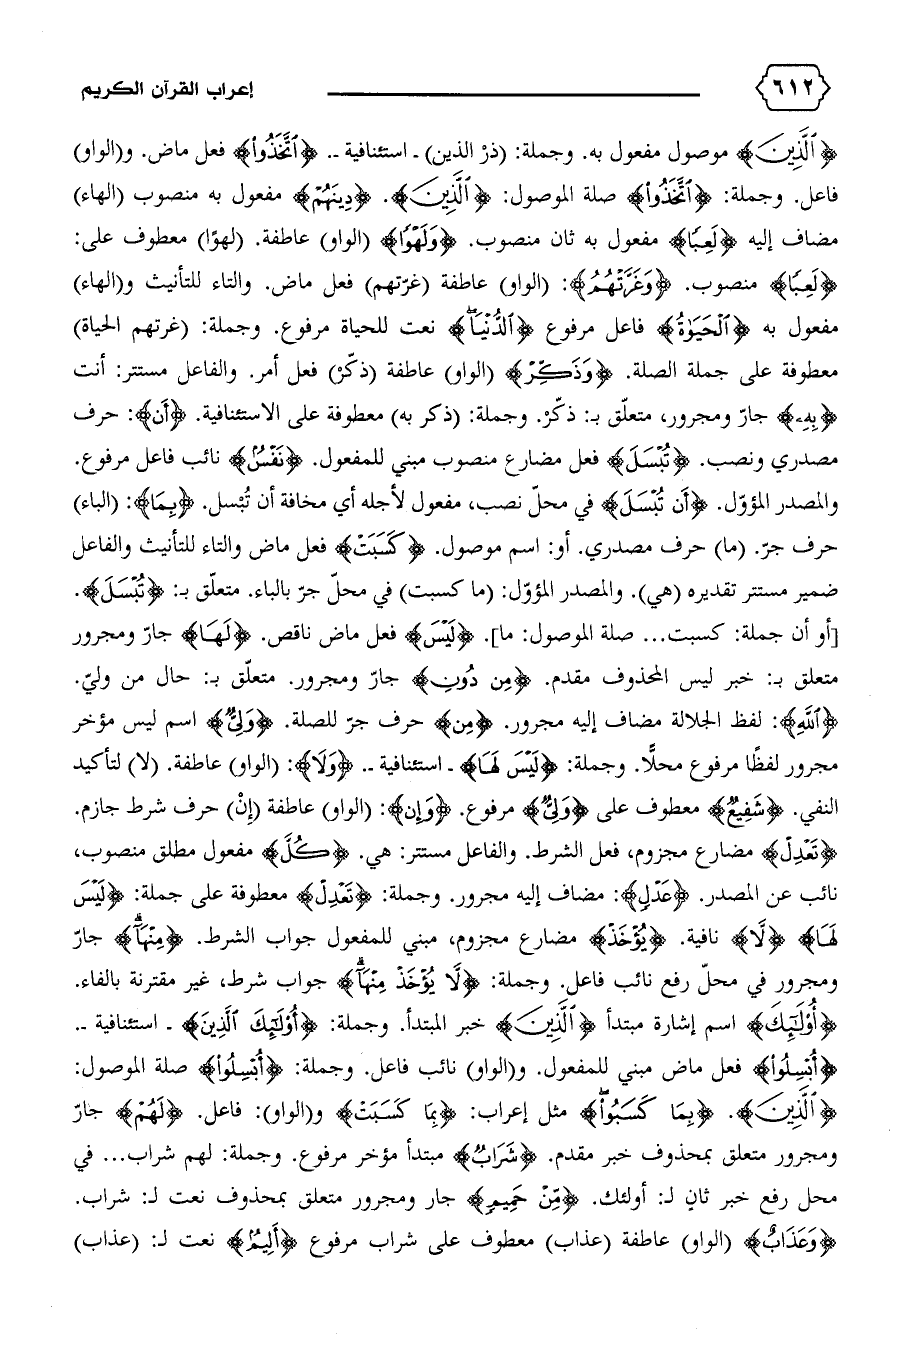 ٦١٢ إعراب القرآن الكريم
﴿ٱلَّذِينَ﴾ موصول مفعول به. وجملة: (ذرْ الذين) ـ استئنافية ـ. ﴿ٱتَّخَذُوا۟﴾ فعل ماض. و(الواو)
فاعل. وجملة: ﴿ٱتَّخَذُوا۟﴾ صلة الموصول: ﴿ٱلَّذِينَ﴾. ﴿دِينَهُمْ﴾ مفعول به منصوب (الهاء)
مضاف إليه ﴿لَعِبًا﴾ مفعول به ثان منصوب. ﴿وَلَهْوًا﴾ (الواو) عاطفة. (لهوًا) معطوف على:
﴿لَعِبًا﴾ منصوب. ﴿وَغَرَّتْهُمُ﴾: (الواو) عاطفة (غرّتهم) فعل ماض. والتاء للتأنيث و(الهاء)
مفعول به ﴿ٱلْحَيَوٰةُ﴾ فاعل مرفوع ﴿ٱلدُّنْيَا ۖ﴾ نعت للحياة مرفوع. وجملة: (غرتهم الحياة)
معطوفة على جملة الصلة. ﴿وَذَكِّرْ﴾ (الواو) عاطفة (ذكّرْ) فعل أمر. والفاعل مستتر: أنت
﴿بِهِۦ﴾ جارّ ومجرور، متعلّق بـ: ذكّرْ. وجملة: (ذكر به) معطوفة على الاستئنافية. ﴿أَن﴾: حرف
مصدري ونصب. ﴿تُبْسَلَ﴾ فعل مضارع منصوب مبني للمفعول. ﴿نَفْسٌۢ﴾ نائب فاعل مرفوع.
والمصدر المؤوّل. ﴿أَن تُبْسَلَ﴾ في محلّ نصب، مفعول لأجله أي مخافة أن تُبْسل. ﴿بِمَا﴾: (الباء)
حرف جرّ. (ما) حرف مصدري. أو: اسم موصول. ﴿كَسَبَتْ﴾ فعل ماض والتاء للتأنيث والفاعل
ضمير مستتر تقديره (هي). والمصدر المؤوّل: (ما كسبت) في محلّ جرّ بالباء. متعلّق بـ: ﴿تُبْسَلَ﴾.
[أو أن جملة: كسبت... صلة الموصول: ما]. ﴿لَيْسَ﴾ فعل ماض ناقص. ﴿لَهَا﴾ جارّ ومجرور
متعلق بـ: خبر ليس المحذوف مقدم. ﴿مِن دُونِ﴾ جارّ ومجرور. متعلّق بـ: حال من وليّ.
﴿ٱللَّهِ﴾: لفظ الجلالة مضاف إليه مجرور. ﴿مِن﴾ حرف جرّ للصلة. ﴿وَلِىٌّ﴾ اسم ليس مؤخر
مجرور لفظًا مرفوع محلًّا. وجملة: ﴿لَيْسَ لَهَا﴾ ـ استئنافية ـ. ﴿وَلَا﴾: (الواو) عاطفة. (لا) لتأكيد
النفي. ﴿شَفِيعٌ﴾ معطوف على ﴿وَلِىٌّ﴾ مرفوع. ﴿وَإِن﴾: (الواو) عاطفة (إنْ) حرف شرط جازم.
﴿تَعْدِلْ﴾ مضارع مجزوم، فعل الشرط. والفاعل مستتر: هي. ﴿كُلَّ﴾ مفعول مطلق منصوب،
نائب عن المصدر. ﴿عَدْلٍ﴾: مضاف إليه مجرور. وجملة: ﴿تَعْدِلْ﴾ معطوفة على جملة: ﴿لَيْسَ
لَهَا﴾ ﴿لَّا﴾ نافية. ﴿يُؤْخَذْ﴾ مضارع مجزوم، مبني للمفعول جواب الشرط. ﴿مِنْهَآ ۗ﴾ جارّ
ومجرور في محلّ رفع نائب فاعل. وجملة: ﴿لَّا يُؤْخَذْ مِنْهَآ ۗ﴾ جواب شرط، غير مقترنة بالفاء.
﴿أُو۟لَـٰٓئِكَ﴾ اسم إشارة مبتدأ ﴿ٱلَّذِينَ﴾ خبر المبتدأ. وجملة: ﴿أُو۟لَـٰٓئِكَ ٱلَّذِينَ﴾ ـ استئنافية ـ.
﴿أُبْسِلُوا۟﴾ فعل ماض مبني للمفعول. و(الواو) نائب فاعل. وجملة: ﴿أُبْسِلُوا۟﴾ صلة الموصول:
﴿ٱلَّذِينَ﴾. ﴿بِمَا كَسَبُوا۟ ۖ﴾ مثل إعراب: ﴿بِمَا كَسَبَتْ﴾ و(الواو): فاعل. ﴿لَهُمْ﴾ جارّ
ومجرور متعلق بمحذوف خبر مقدم. ﴿شَرَابٌ﴾ مبتدأ مؤخر مرفوع. وجملة: لهم شراب... في
محل رفع خبر ثانٍ لـ: أولئك. ﴿مِّنْ حَمِيمٍ﴾ جار ومجرور متعلق بمحذوف نعت لـ: شراب.
﴿وَعَذَابٌ﴾ (الواو) عاطفة (عذاب) معطوف على شراب مرفوع ﴿أَلِيمٌۢ﴾ نعت لـ: (عذاب)